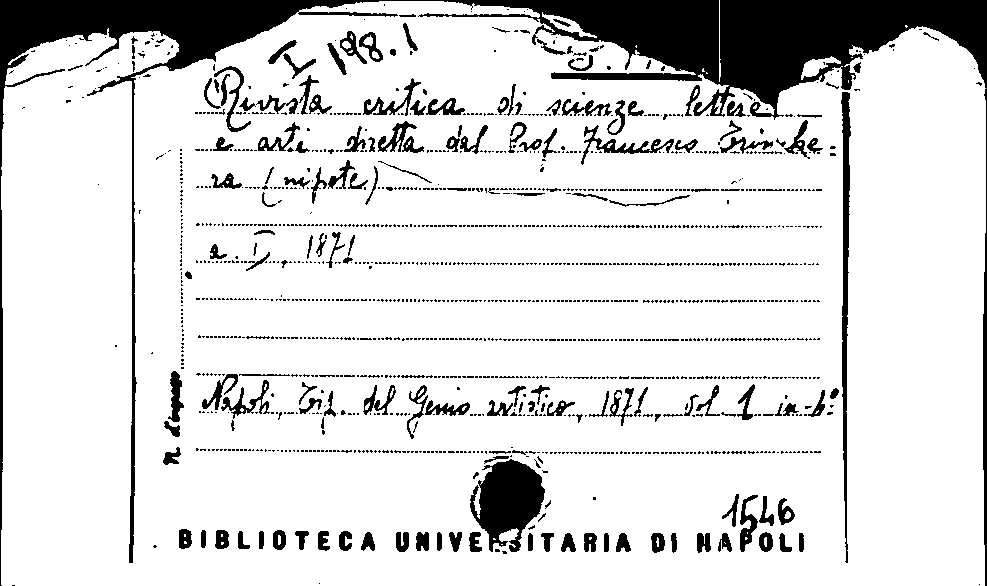 I 198.1
Rivista critica di scienze, lettere
e arti, diretta dal Prof. Francesco Trinche=
ra (nipote).
a. I, 1871.
Napoli, Tip. del Genio artistico, 1871, vol. 1 in-4º
N. d'ingresso
1546
BIBLIOTECA UNIVERSITARIA DI NAPOLI